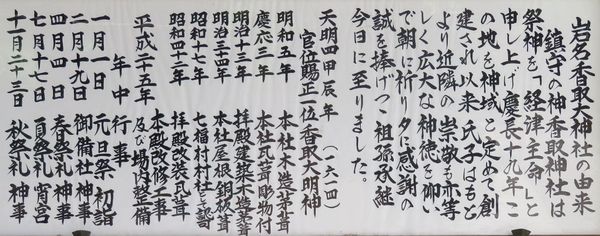 岩名香取大神社の由来
鎮守の神香取神社は
祭神を「経津主命」と
申し上げ慶長十九年こ
の地を神域と定めて創
建され以来氏子はもと
より近隣の崇敬も亦等
しく広大な神徳を仰い
で朝に祈り夕に感謝の
誠を捧げつゝ祖孫承継
今日に至りました。
天明四甲辰年（一六一四）
官位賜正一位香取大明神
明和五年 本社木造茅葺
慶応三年 本社瓦葺彫物付
明治十三年 拝殿建築木造茅葺
明治三四年 本社屋根銅板葺
昭和十七年 七福村村社と認可
昭和四十二年 拝殿改装瓦葺
平成二五年 本殿改修工事
及び場内整備
年中行事
一月一日 元旦祭 初詣
二月十九日 御備社神事
四月四日 春祭礼神事
七月十七日 夏祭礼宵宮
十一月二十三日 秋祭礼神事